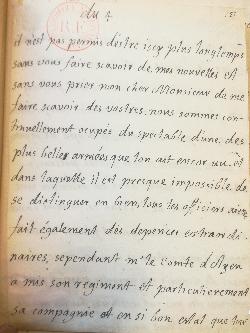 du 4
il n'est pas permis destre icy plus longtemps
sans vous faire scavoir de mes nouvelles et
sans vous prier mon cher Monsieur de me
faire scavoir des vostres, nous sommes con-
tinuellement ocupés du spectable d'une, des
plus belles armées que l'on ait encor vu, et
dans laquelle il est presque impossible, de
se distinguer en bien, tous les officiers aient
fait également des depences extraordi-
naires, cependant mr le comte d'Ayen
a mis son regiment et particulierement
sa compagnie et en si bon estat que tout